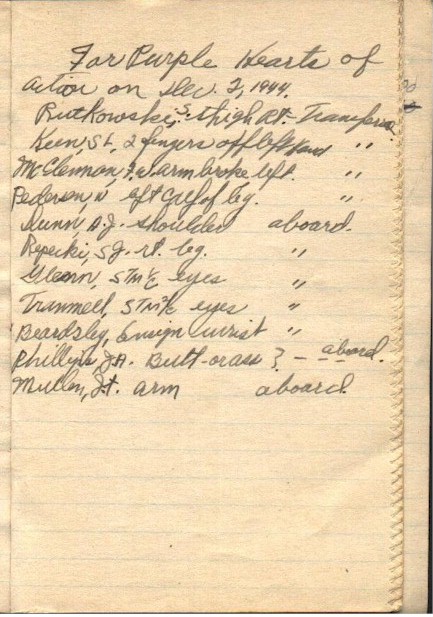 For Purple Hearts of
action on Dec. 2, 1944.
Rutkowski, S. thigh rt. - Transferred
Keen, S L, 2 fingers off left hand "
McClennon, F.W arm broke left. "
Pedersen, N left calf of leg. "
Dunn, A.J. shoulder aboard.
Repecki, S J. rt. leg. "
Glenn, STM 1/C eyes "
Trammell, STM 2/C eyes "
Beardsley, Ensign wrist "
Phillips, J.A. Butt-orass } - aboard.
Mullen, Jt. arm aboard.